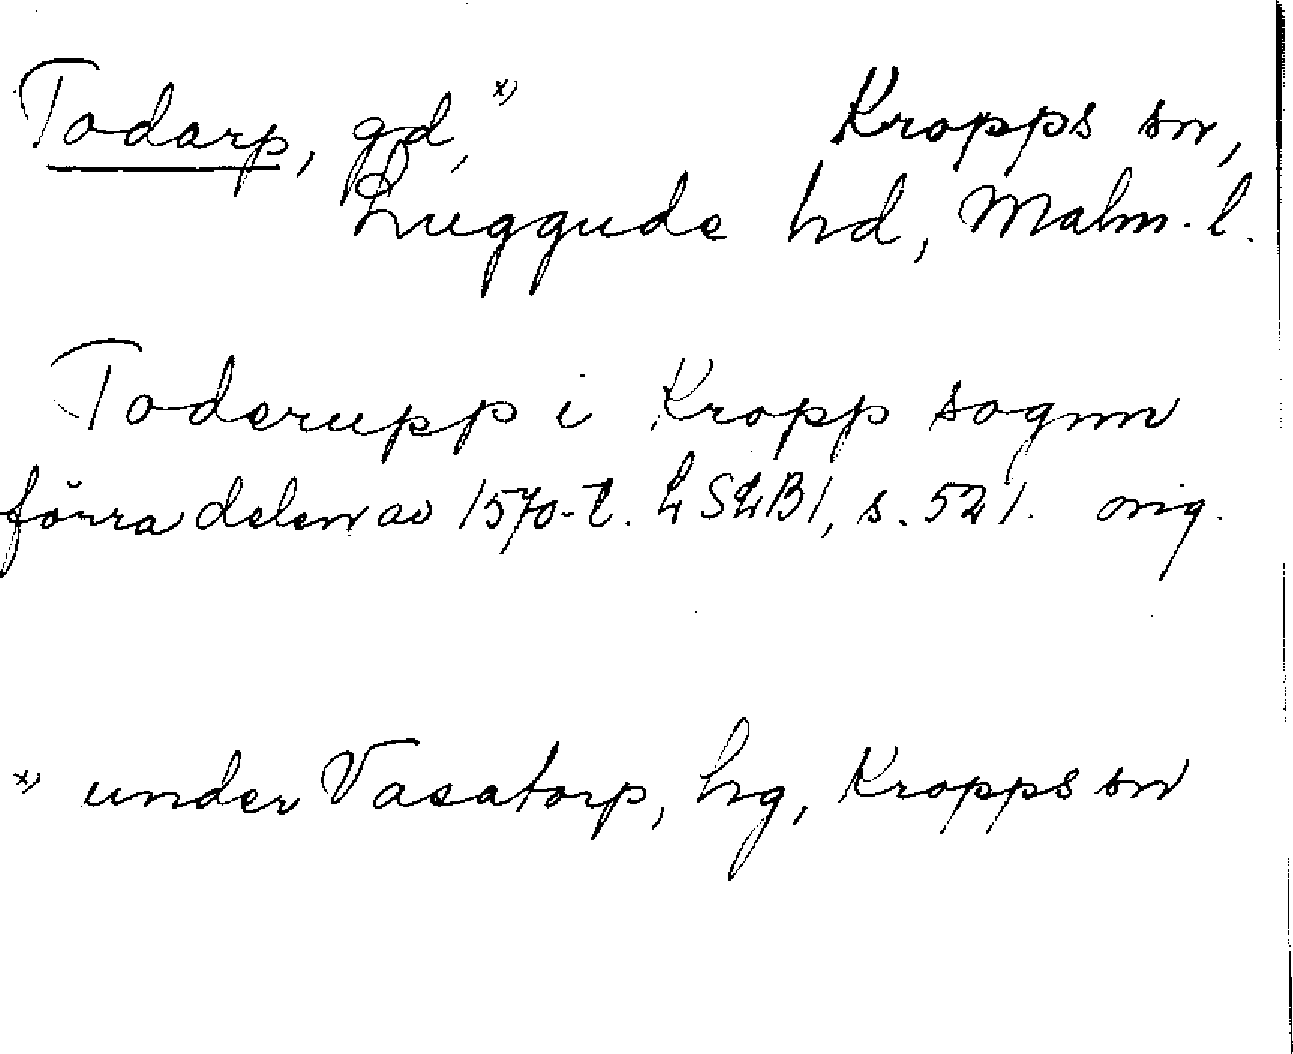 Todarp, gd, x) Kropps sn,
Luggude hd, Malm. l.
Toderupp i Kropp sognn
förra delen av 1570-t. LSLB1, s. 521. orig.
x) under Vasatorp, hg, Kropps sn